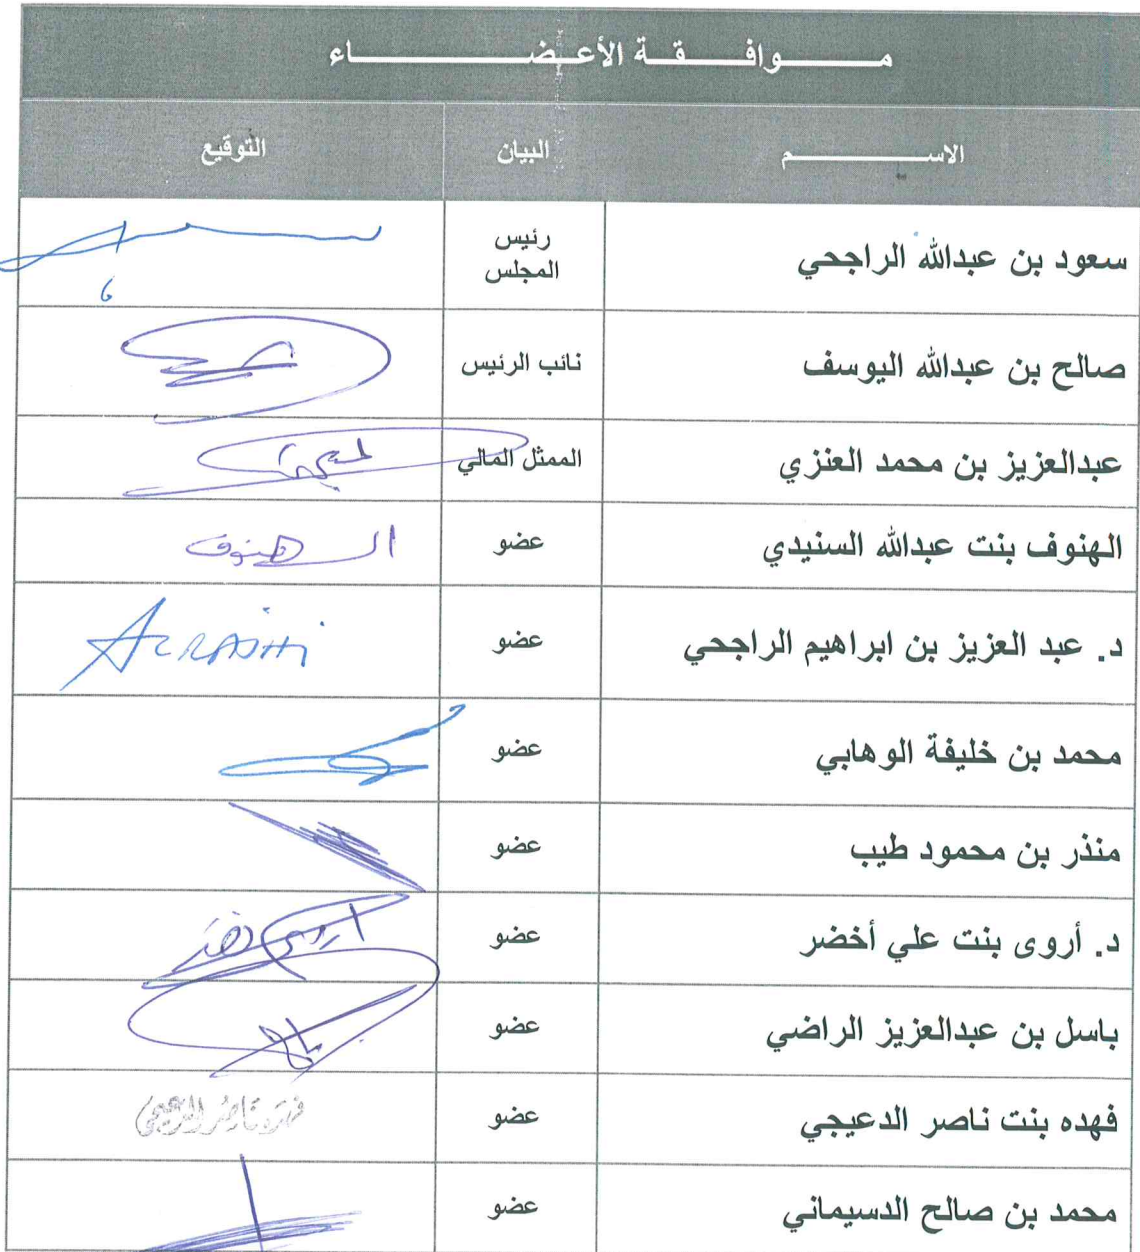 مــــوافــــقــة الأعــضــــــــــاء
الاســــــــم البيان التوقيع
سعود بن عبدالله الراجحي رئيس المجلس
صالح بن عبدالله اليوسف نائب الرئيس
عبدالعزيز بن محمد العنزي الممثل المالي
الهنوف بنت عبدالله السنيدي عضو الهنوف
د. عبد العزيز بن ابراهيم الراجحي عضو ALRAJHi
محمد بن خليفة الوهابي عضو
منذر بن محمود طيب عضو
د. أروى بنت علي أخضر عضو
باسل بن عبدالعزيز الراضي عضو
فهده بنت ناصر الدعيجي عضو فهده ناصر الدعيجي
محمد بن صالح الدسيماني عضو